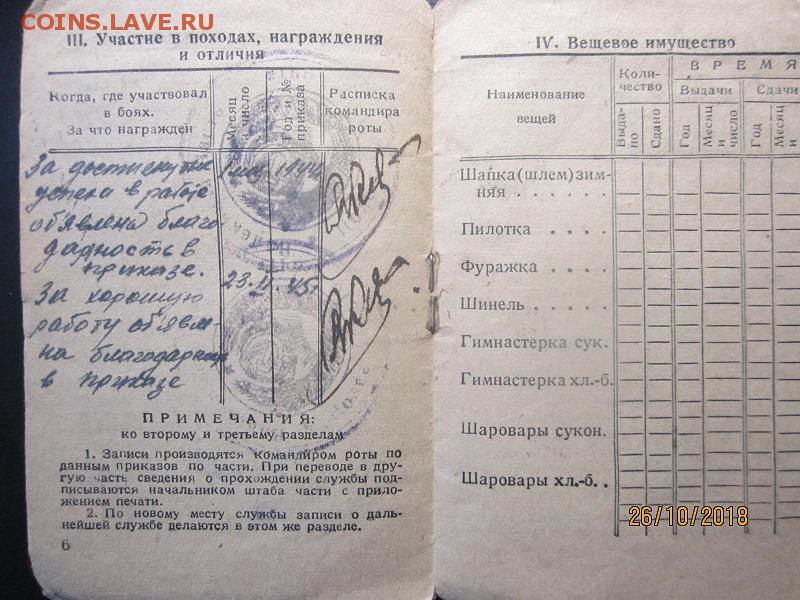 COINS.LAVE.RU
III. Участие в походах, награждения
и отличия
Когда, где участвовал
в боях.
За что награжден
Месяц
число
Год и №
приказа
Расписка
командира
роты
За достигнутые
успехи в работе
объявлена благо
дарность в
приказе.
1944
За хорошую
работу объявле
на благодарность
в приказе
23.II.45г
ПРИМЕЧАНИЯ:
ко второму и третьему разделам
1. Записи производятся командиром роты по
данным приказов по части. При переводе в дру-
гую часть сведения о прохождении службы под-
писываются начальником штаба части с прило-
жением печати.
2. По новому месту службы записи о даль-
нейшей службе делаются в этом же разделе.
6
IV. Вещевое имущество
Наименование
вещей
Коли-
чество
ВРЕМЯ
Выдачи
Сдачи
Выда-
но
Сдано
Год
Месяц
и
число
Год
Месяц
и
Шапка (шлем) зим-
няя . . . . . .
Пилотка . . . .
Фуражка . . . .
Шинель . . . .
Гимнастерка сук.
Гимнастерка хл.-б.
Шаровары сукон.
Шаровары хл.-б. .
26/10/2018